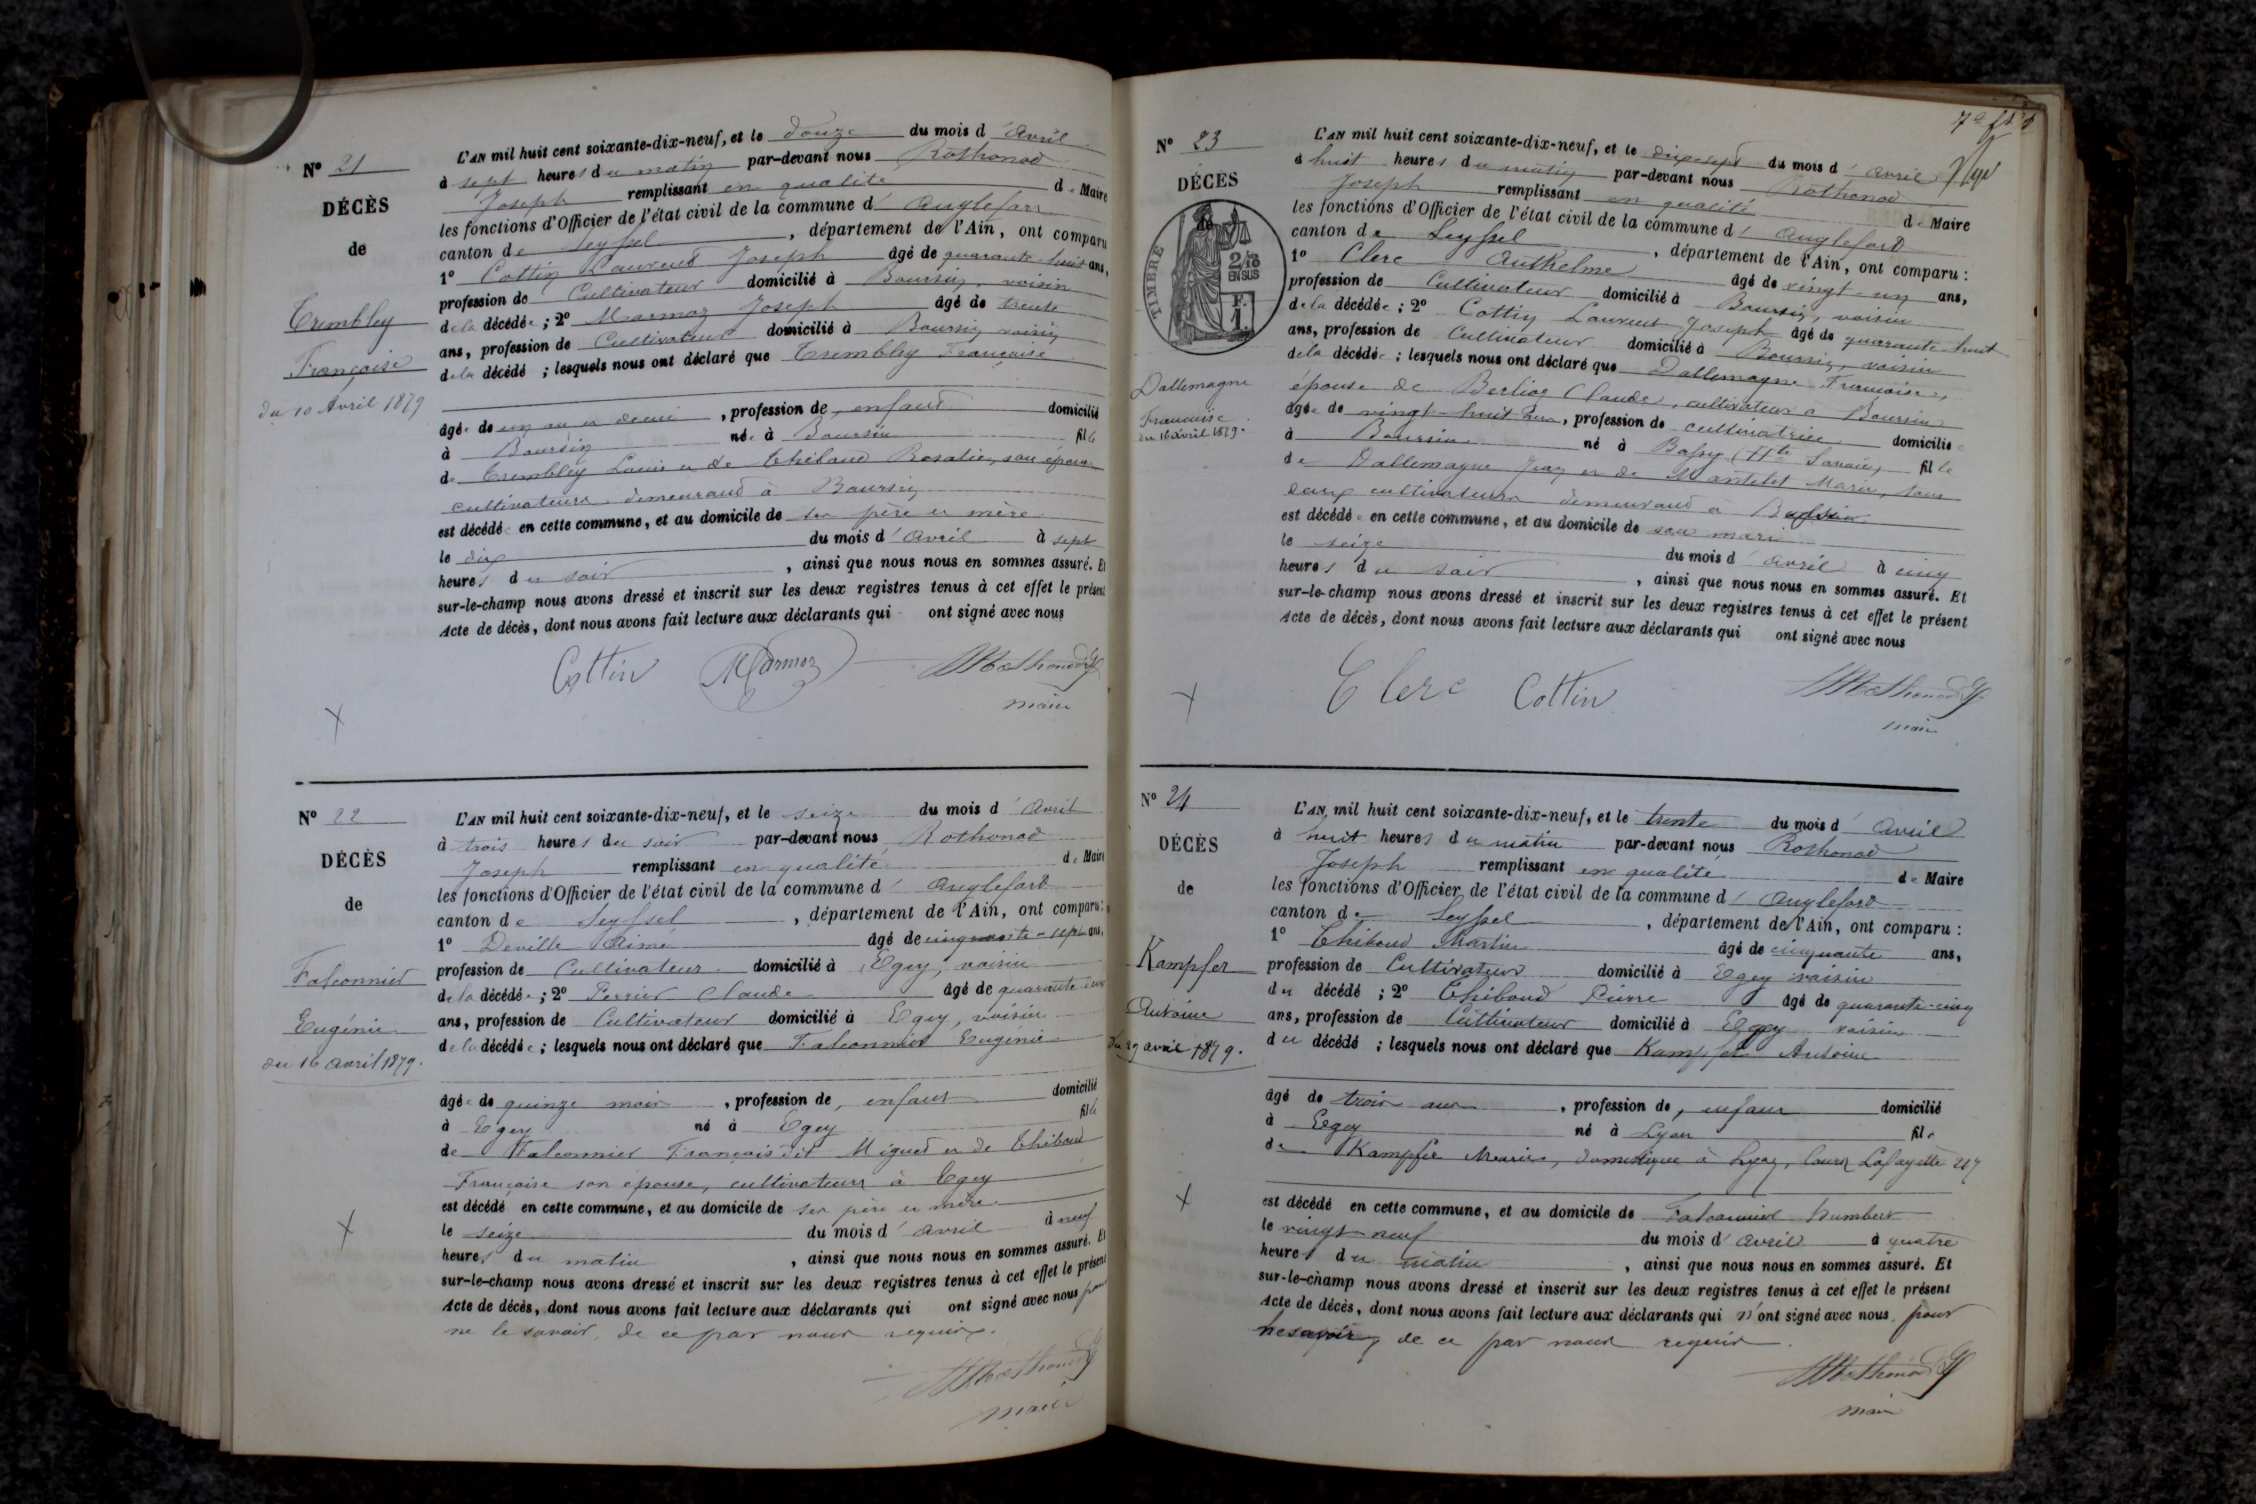 N° 21
DÉCÈS
de
Trembley
Françoise
du 10 Avril 1879
L'AN mil huit cent soixante-dix-neuf, et le douze du mois d'avril
à sept heures du matin par-devant nous Rothonod
Joseph remplissant en qualité de Maire
les fonctions d'Officier de l'état civil de la commune d'Anglefort
canton de Seyssel, département de l'Ain, ont comparu
1° Cottin Laurent Joseph âgé de quarante-huit ans,
profession de Cultivateur domicilié à Boursin, voisin
de la décédée ; 2° Marmoz Joseph âgé de trente
ans, profession de Cultivateur domicilié à Boursin, voisin
de la décédé ; lesquels nous ont déclaré que Trembley Françoise
âgée de un an et demi, profession de, enfant domicilié
à Boursin née à Boursin fille
de Trembley Louis et de Thibaud Rosalie, son épouse
cultivateurs demeurant à Boursin
est décédée en cette commune, et au domicile de ses père et mère
le dix du mois d'avril à sept
heures du soir, ainsi que nous nous en sommes assuré. Et
sur-le-champ nous avons dressé et inscrit sur les deux registres tenus à cet effet le présent
Acte de décès, dont nous avons fait lecture aux déclarants qui ont signé avec nous
Cottin Marmoz Rothonod J
maire
N° 22
DÉCÈS
de
Falconnier
Eugénie
du 16 avril 1879.
L'AN mil huit cent soixante-dix-neuf, et le seize du mois d'avril
à trois heures du soir par-devant nous Rothonod
Joseph remplissant en qualité de Maire
les fonctions d'Officier de l'état civil de la commune d'Anglefort
canton de Seyssel, département de l'Ain, ont comparu :
1° Deville Aimé âgé de cinquante-sept ans,
profession de Cultivateur domicilié à Egey, voisin
de la décédée ; 2° Perrier Claude âgé de quarante-deux
ans, profession de Cultivateur domicilié à Egey, voisin
de la décédée ; lesquels nous ont déclaré que Falconnier Eugénie
âgée de quinze mois, profession de, enfant domicilié
à Egey né à Egey fille
de Falconnier François dit Miguet et de Thibaud
Françoise son épouse, cultivateurs à Egey
est décédé en cette commune, et au domicile de ses père et mère
le seize du mois d'avril à neuf
heures du matin, ainsi que nous nous en sommes assuré. Et
sur-le-champ nous avons dressé et inscrit sur les deux registres tenus à cet effet le présent
Acte de décès, dont nous avons fait lecture aux déclarants qui ont signé avec nous pour
ne le savoir, de ce par nous requis.
Rothonod J
maire
N° 23
DÉCÈS
TIMBRE
2/10
EN SUS
F.
1
Dallemagne
Françoise
du 16 avril 1879.
L'AN mil huit cent soixante-dix-neuf, et le dix-sept du mois d'avril
à huit heures du matin par-devant nous Rothonod
Joseph remplissant en qualité de Maire
les fonctions d'Officier de l'état civil de la commune d'Anglefort
canton de Seyssel, département de l'Ain, ont comparu :
1° Clerc Anthelme âgé de vingt-un ans,
profession de Cultivateur domicilié à Boursin, voisin
de la décédée ; 2° Cottin Laurent Joseph âgé de quarante-huit
ans, profession de Cultivateur domicilié à Boursin, voisin
de la décédée ; lesquels nous ont déclaré que Dallemagne Françoise,
épouse de Berlioz Claude, cultivateur à Boursin
âgée de vingt-huit ans, profession de cultivatrice domiciliée
à Boursin né à Bassy (Hte Savoie) fille
de Dallemagne Jean et de Mantelet Marie, tous
deux cultivateurs demeurant à
est décédée en cette commune, et au domicile de son mari
le seize du mois d'avril à cinq
heures du soir, ainsi que nous nous en sommes assuré. Et
sur-le-champ nous avons dressé et inscrit sur les deux registres tenus à cet effet le présent
Acte de décès, dont nous avons fait lecture aux déclarants qui ont signé avec nous
Clerc Cottin Rothonod J
maire
N° 24
DÉCÈS
de
Kampfer
Antoine
du 29 avril 1879.
L'AN mil huit cent soixante-dix-neuf, et le trente du mois d'avril
à huit heures du matin par-devant nous Rothonod
Joseph remplissant en qualité de Maire
les fonctions d'Officier de l'état civil de la commune d'Anglefort
canton de Seyssel, département de l'Ain, ont comparu :
1° Thiboud Martin âgé de cinquante ans,
profession de Cultivateur domicilié à Egey voisin
du décédé ; 2° Thiboud Pierre âgé de quarante-cinq
ans, profession de Cultivateur domicilié à Egey voisin
du décédé ; lesquels nous ont déclaré que Kampfer Antoine
âgé de trois ans, profession de, enfant domicilié
à Egey né à Lyon fils
de Kampfer Marie, domestique à Lyon, Cours Lafayette 217
est décédé en cette commune, et au domicile de Falconnier Humbert
le vingt-neuf du mois d'avril à quatre
heures du matin, ainsi que nous nous en sommes assuré. Et
sur-le-champ nous avons dressé et inscrit sur les deux registres tenus à cet effet le présent
Acte de décès, dont nous avons fait lecture aux déclarants qui n'ont signé avec nous, pour
ne savoir, de ce par nous requis.
Rothonod J
maire